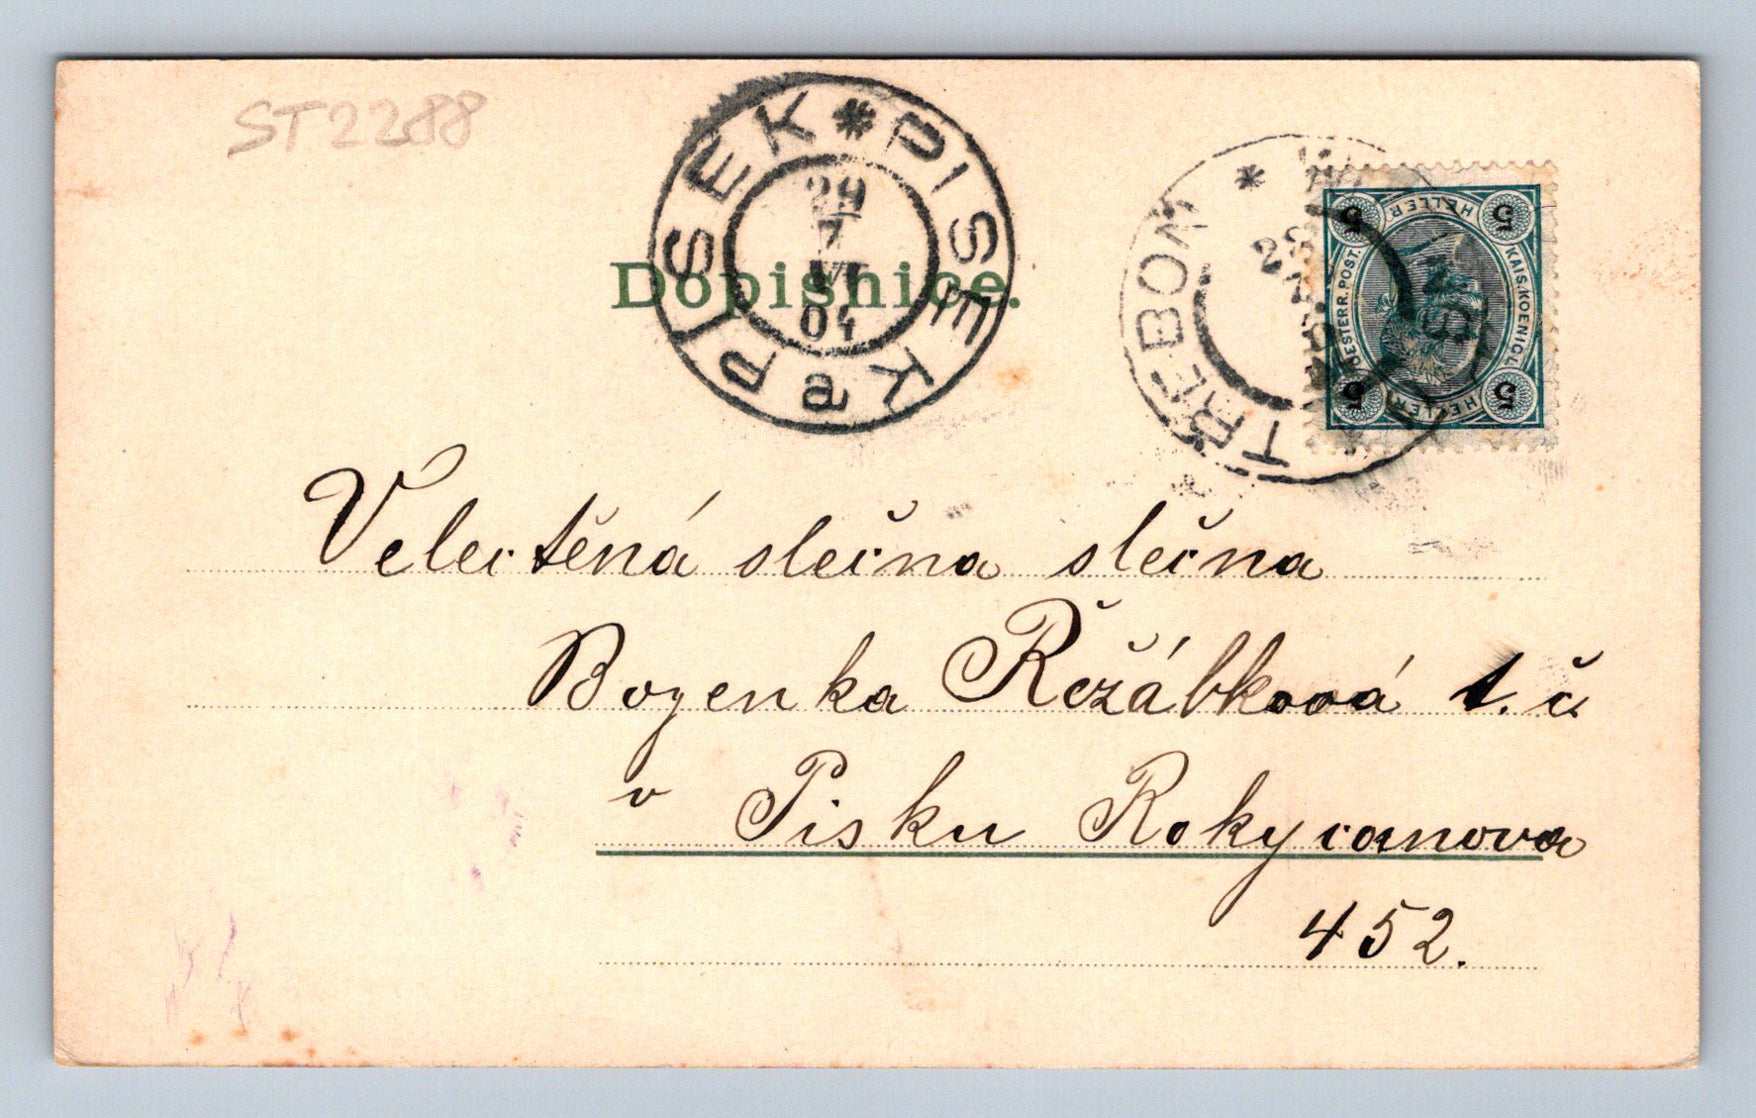 ST2288
PISEK * PISEK PISEK a
29
7
VI
04
Dopisnice.
TŘEBOŇ *
5 HELLER 5
KAIS. KOENIGL. OESTERR. POST.
5 HELLER 5
Velectěná slečna slečna
Bozenka Řežábková t. č.
v Pisku Rokycanova
452.